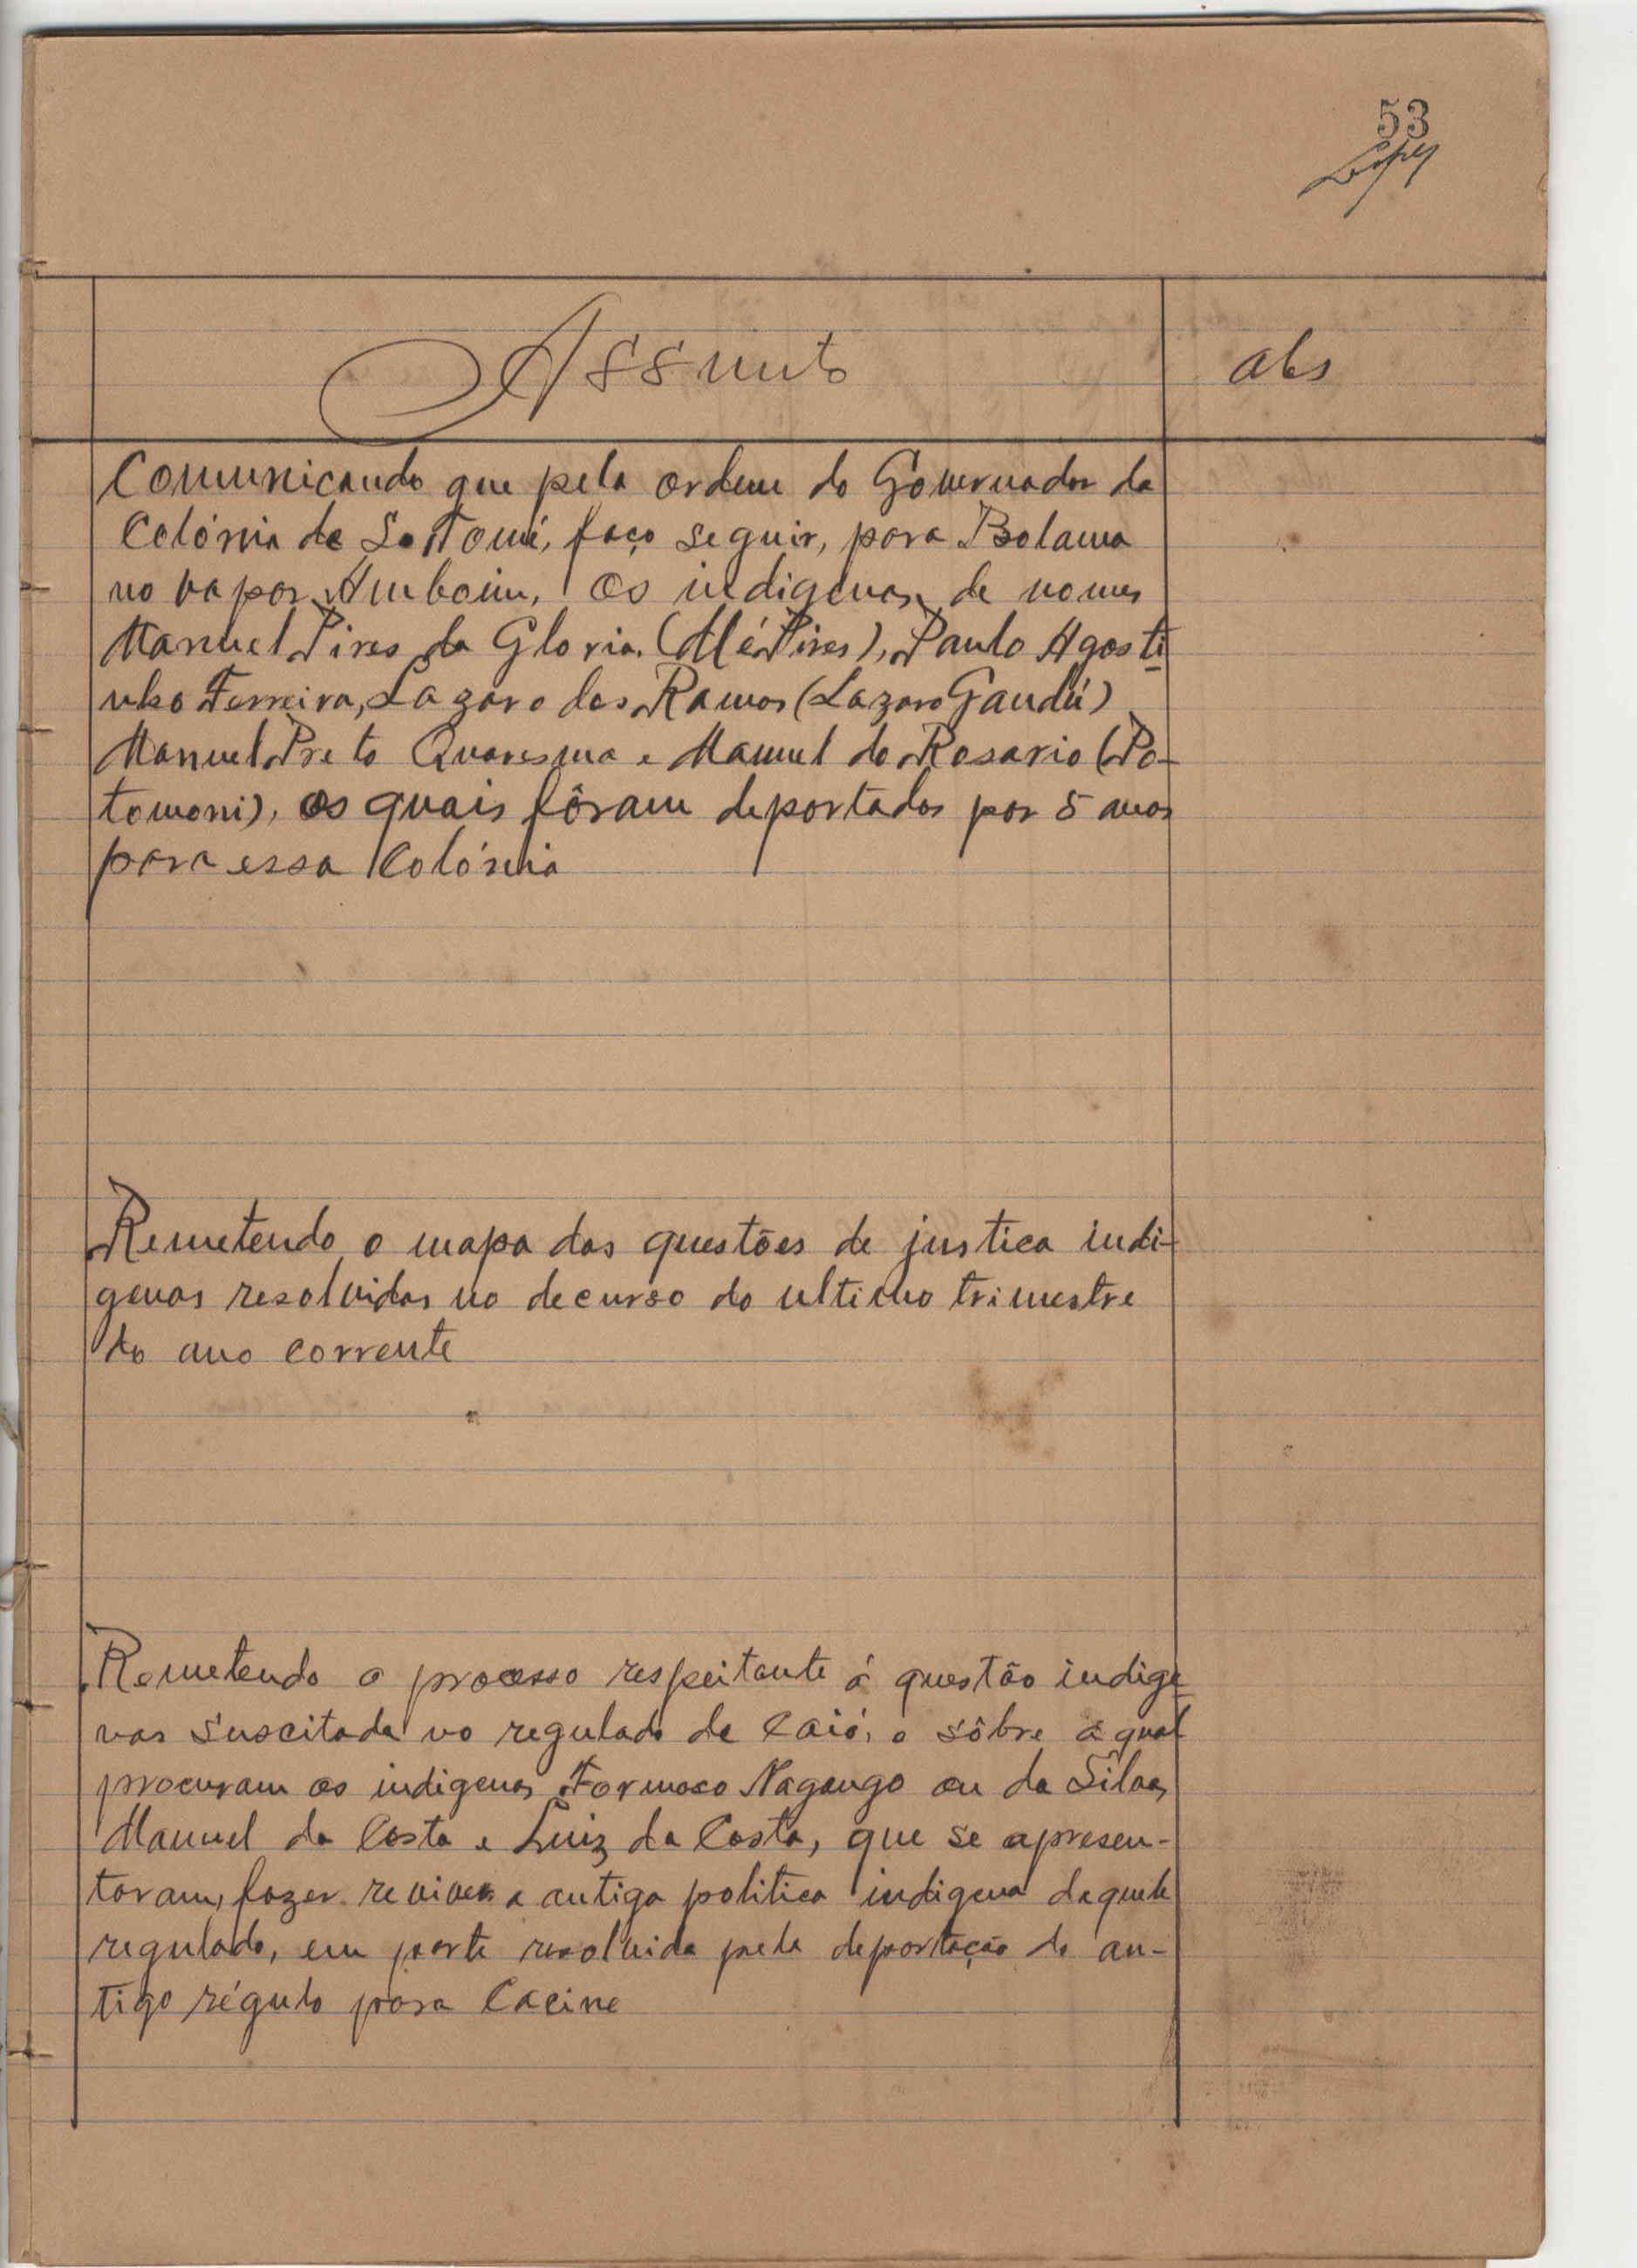 53
Assunto
obs
Comunicando que pela ordem do Governador da
Colónia de S. Tomé, faço seguir, para Bolama
no vapor Amboim, os indigenas, de nomes
Manuel Pires da Gloria, (Mé Pires), Paulo Agosti
nho Ferreira, Lazaro dos Ramos (Lazaro Gandú)
Manuel Preto Quaresma e Manuel do Rosario (Po-
tomoni), os quais fôram deportados por 5 anos
para essa Colónia
Remetendo o mapa das questões de justica indi-
genas resolvidas no decurso do ultimo trimestre
do ano corrente
Remetendo o processo respeitante á questão indige
nas suscitada no regulado de Caió, e sôbre a qual
procuram os indigenas Formoso Nagango ou da Silva,
Manuel da Costa e Luiz da Costa, que se apresen-
taram, fazer reviver a antiga politica indigena daquele
regulado, em parte resolvida pela deportação do an-
tigo régulo para Cacine